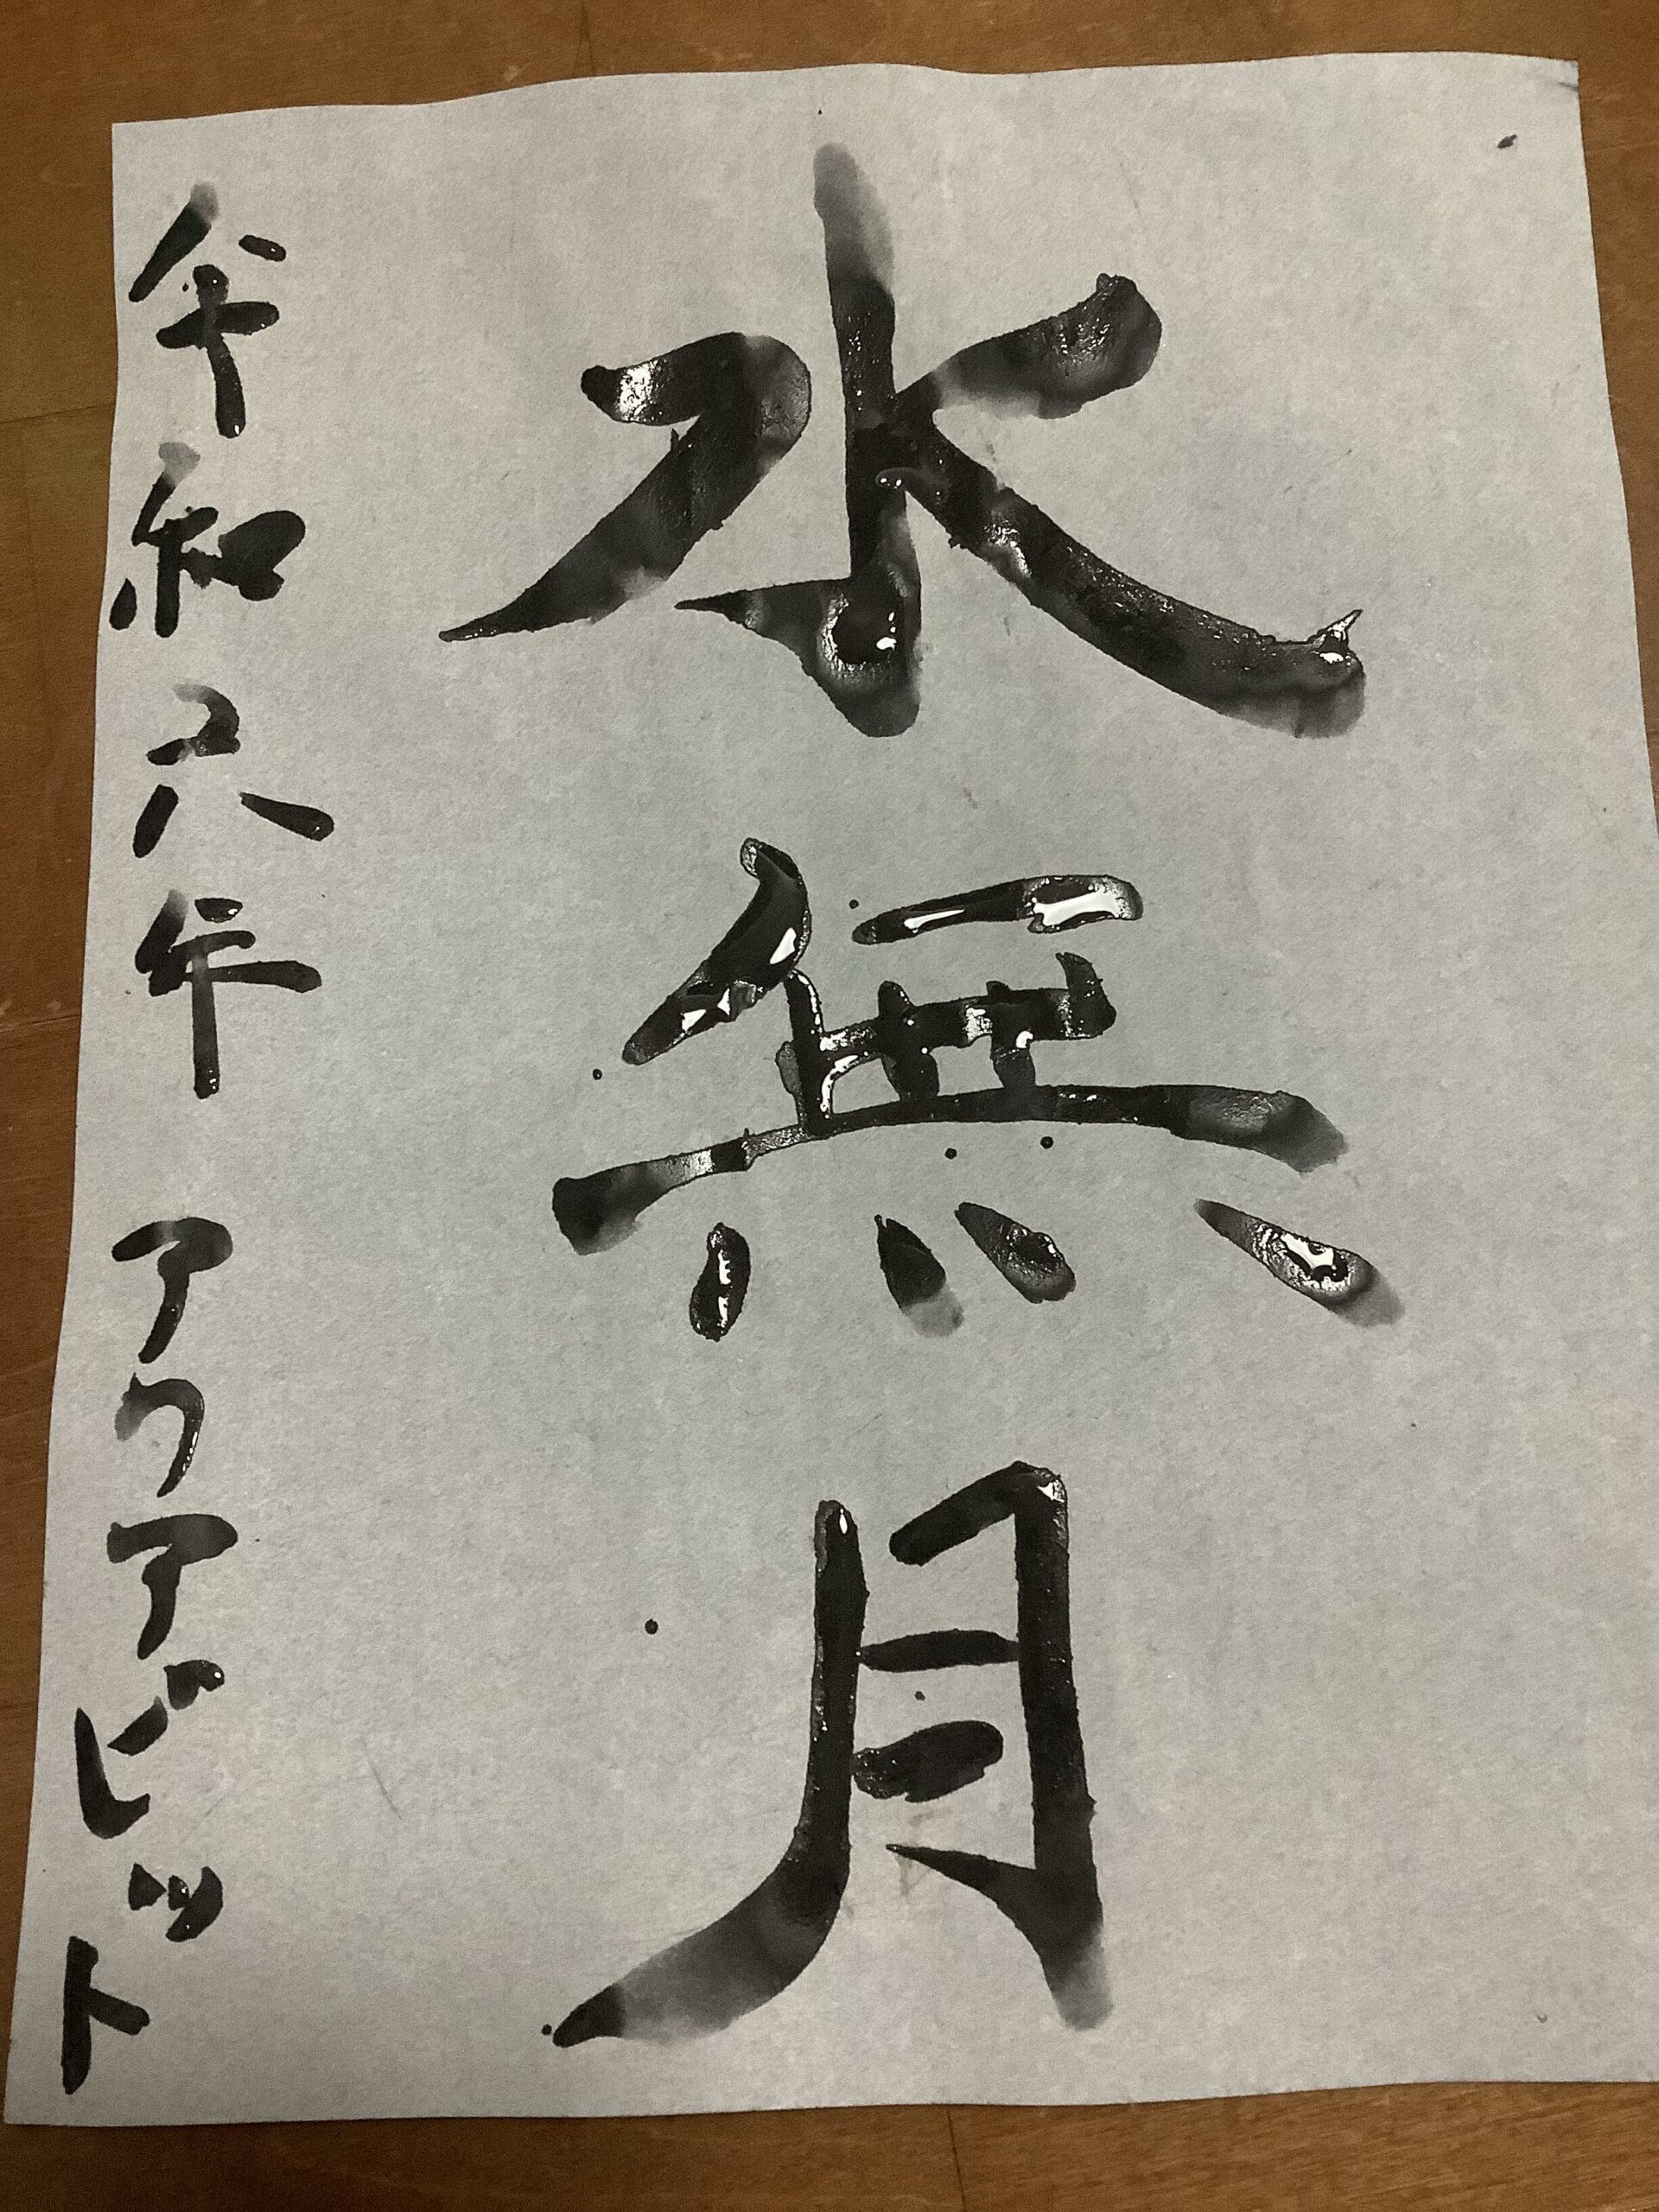 水無月
令和六年 アクアビット